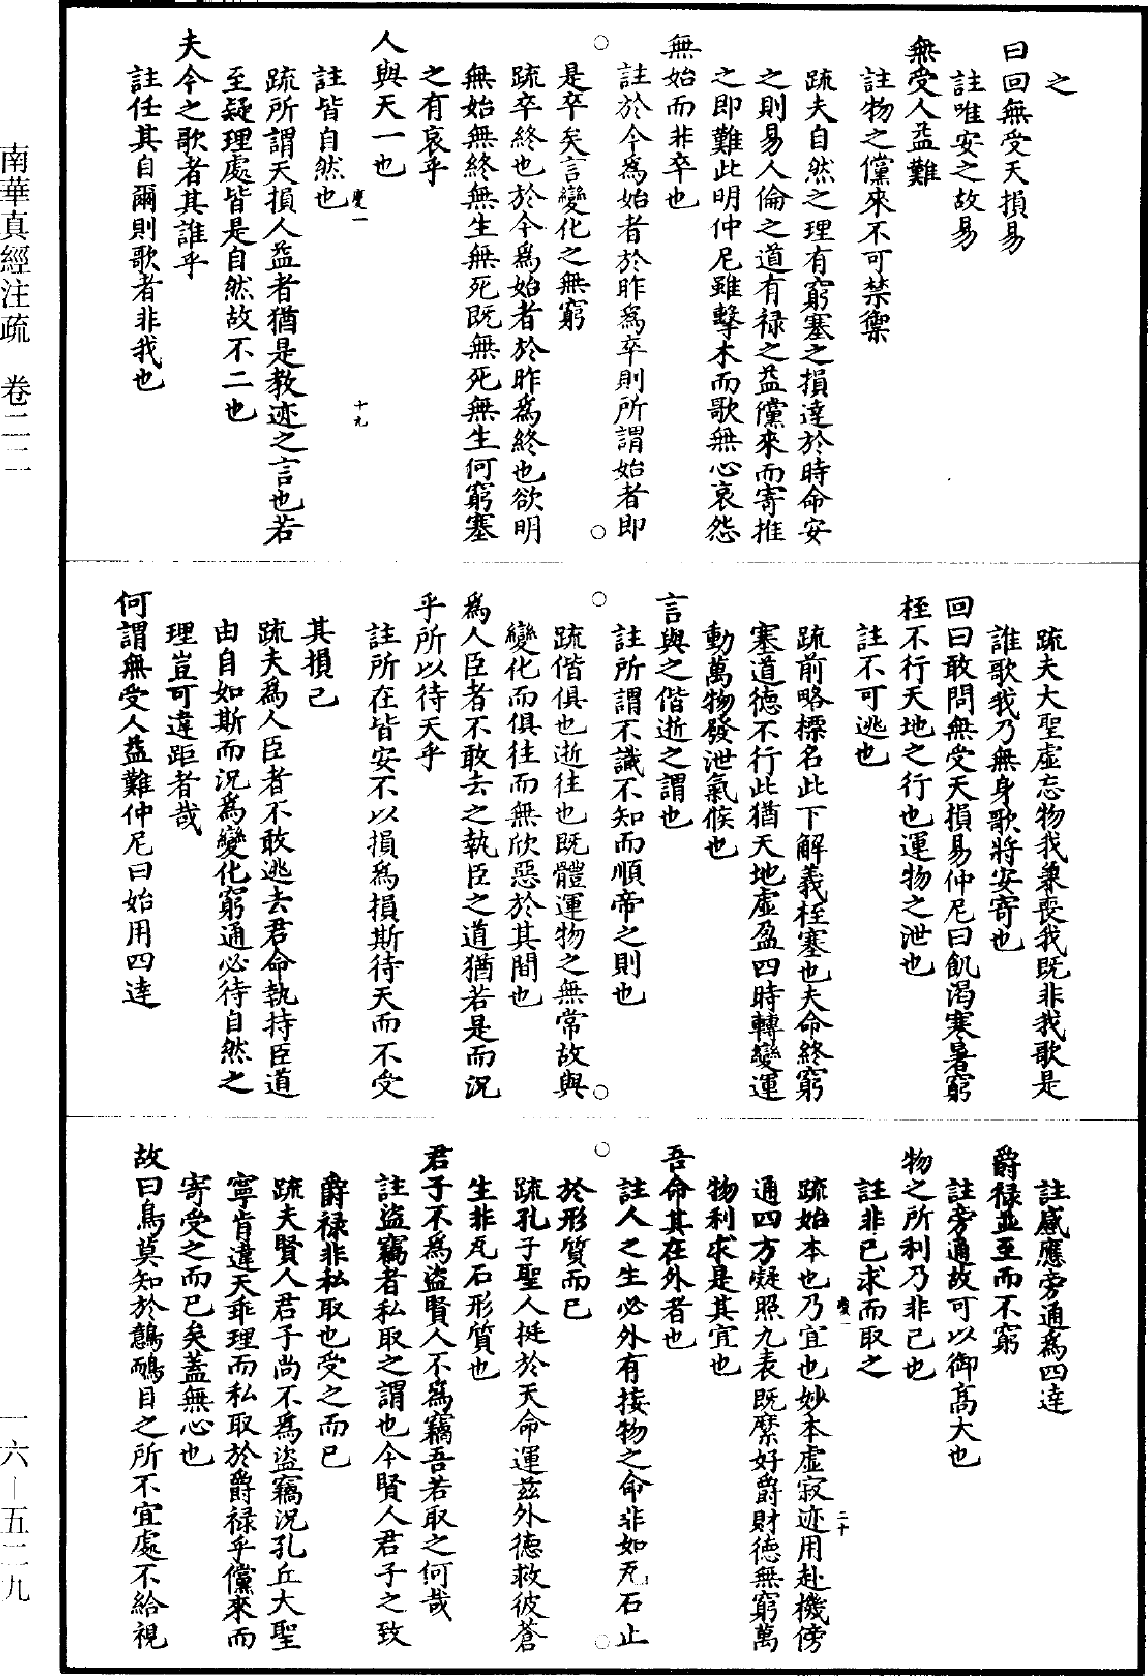 之
曰回無受天損易
註唯安之故易
無受人益難
註物之儻來不可禁禦
疏夫自然之理有窮塞之損達於時命安
之則易人倫之道有祿之益儻來而寄推
之即難此明仲尼雖擊木而歌無心哀怨
無始而非卒也
註於今爲始者於昨爲卒則所謂始者即
是卒矣言變化之無窮
疏卒終也於今爲始者於昨爲終也欲明
無始無終無生無死既無死無生何窮塞
之有哀乎
人與天一也
註皆自然也
十九
疏所謂天損人益者猶是教迹之言也若
至疑理處皆是自然故不二也
夫今之歌者其誰乎
註任其自爾則歌者非我也
疏夫大聖虛忘物我兼喪我既非我歌是
誰歌我乃無身歌將安寄也
回曰敢問無受天損易仲尼曰飢渴寒暑窮
桎不行天地之行也運物之泄也
註不可逃也
疏前略標名此下解義桎塞也夫命終窮
塞道德不行此猶天地虛盈四時轉變運
動萬物發泄氣候也
言與之偕逝之謂也
註所謂不識不知而順帝之則也
疏偕俱也逝往也既體運物之無常故與
變化而俱往而無欣惡於其間也
爲人臣者不敢去之執臣之道猶若是而況
乎所以待天乎
註所在皆安不以損爲損斯待天而不受
其損已
疏夫爲人臣者不敢逃去君命執持臣道
由自如斯而況爲變化窮通必待自然之
理豈可違距者哉
何謂無受人益難仲尼曰始用四達
註感應旁通爲四達
爵祿並至而不窮
註旁通故可以御高大也
物之所利乃非己也
註非己求而取之
二十
疏始本也乃宜也妙本虛寂迹用赴機傍
通四方凝照九表既縻好爵財德無窮萬
物利求是其宜也
吾命其在外者也
註人之生必外有接物之命非如瓦石止
於形質而已
疏孔子聖人挺於天命運茲外德救彼蒼
生非瓦石形質也
君子不爲盜賢人不爲竊吾若取之何哉
註盜竊者私取之謂也今賢人君子之致
爵祿非私取也受之而已
疏夫賢人君子尚不爲盜竊況孔丘大聖
寧肯違天乖理而私取於爵祿乎儻來而
寄受之而已矣蓋無心也
故曰鳥莫知於鷾鴯目之所不宜處不給視
南華真經注疏　卷二二
一六—五二九